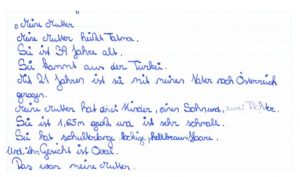 "Meine Mutter"
Meine Mutter heißt Fatma.
Sie ist 39 Jahre alt.
Sie kommt aus der Türkei.
Mit 21 Jahren ist sie mit meinen Vater nach Österreich
gezogen.
Meine Mutter hat drei Kinder, einen Sohn und, zwei Töchter.
Sie ist 1,65m groß und ist sehr schmal.
Sie hat schulterlange lockige, hellbraune Haare.
Und ihr Gesicht ist Oval.
Das war meine Mutter.